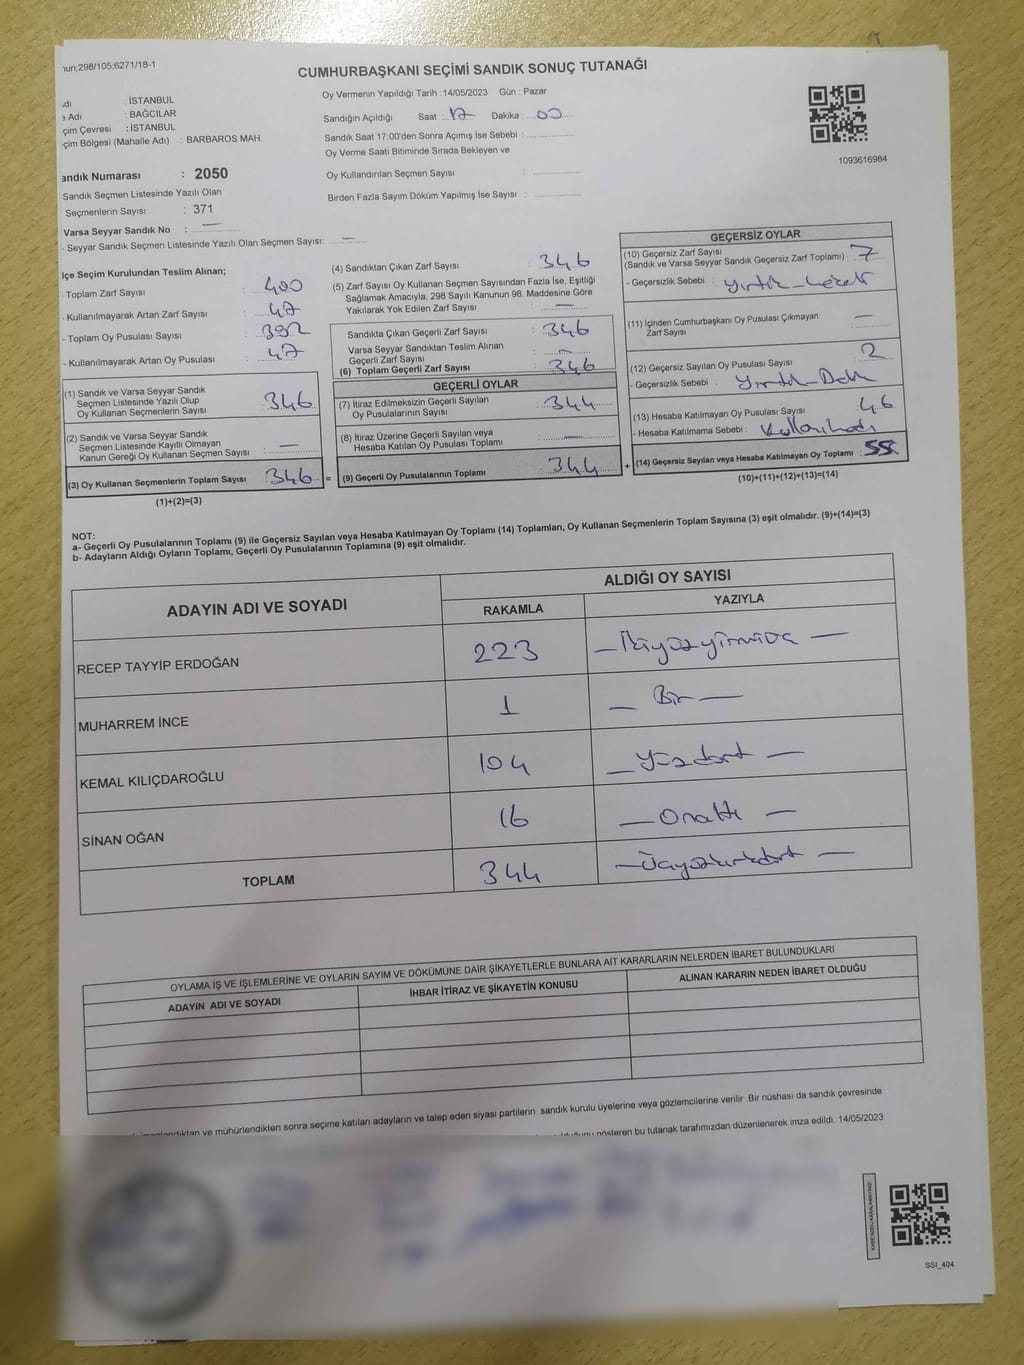 nun;298/105;6271/18-1
CUMHURBAŞKANI SEÇİMİ SANDIK SONUÇ TUTANAĞI
Oy Vermenin Yapıldığı Tarih :14/05/2023 Gün : Pazar
Sandığın Açıldığı Saat 17 Dakika : 00
Sandık Saat 17:00'den Sonra Açımış İse Sebebi :
Oy Verme Saati Bitiminde Sırada Bekleyen ve
Oy Kullandırılan Seçmen Sayısı :
Birden Fazla Sayım Döküm Yapılmış İse Sayısı :
1093616984
dı : İSTANBUL
e Adı : BAĞCILAR
çim Çevresi : İSTANBUL
çim Bölgesi (Mahalle Adı) : BARBAROS MAH.
andık Numarası : 2050
Sandık Seçmen Listesinde Yazılı Olan
Seçmenlerin Sayısı : 371
Varsa Seyyar Sandık No : —
- Seyyar Sandık Seçmen Listesinde Yazılı Olan Seçmen Sayısı: —
lçe Seçim Kurulundan Teslim Alınan;
Toplam Zarf Sayısı : 400
- Kullanılmayarak Artan Zarf Sayısı : 47
- Toplam Oy Pusulası : 392
- Kullanılmayarak Artan Oy Pusulası : 47
(1) Sandık ve Varsa Seyyar Sandık
Seçmen Listesinde Yazılı Olup
Oy Kullanan Seçmenlerin Sayısı : 346
(2) Sandık ve Varsa Seyyar Sandık
Seçmen Listesinde Kayıtlı Olmayan
Kanun Gereği Oy Kullanan Seçmen Sayısı : —
(3) Oy Kullanan Seçmenlerin Toplam Sayısı : 346 =
(1)+(2)=(3)
(4) Sandıktan Çıkan Zarf Sayısı : 346
(5) Zarf Sayısı Oy Kullanan Seçmen Sayısından Fazla İse, Eşitliği
Sağlamak Amacıyla; 298 Sayılı Kanunun 98. Maddesine Göre
Yakılarak Yok Edilen Zarf Sayısı : —
Sandıkta Çıkan Geçerli Zarf Sayısı : 346
Varsa Seyyar Sandıktan Teslim Alınan
Geçerli Zarf Sayısı : —
(6) Toplam Geçerli Zarf Sayısı : 346
GEÇERLİ OYLAR
(7) İtiraz Edilmeksizin Geçerli Sayılan
Oy Pusulalarının Sayısı : 344
(8) İtiraz Üzerine Geçerli Sayılan veya
Hesaba Katılan Oy Pusulası Toplamı : —
(9) Geçerli Oy Pusulalarının Toplamı : 344 +
GEÇERSİZ OYLAR
(10) Geçersiz Zarf Sayısı
(Sandık ve Varsa Seyyar Sandık Geçersiz Zarf Toplamı) : 7
- Geçersizlik Sebebi : Yırtık -
(11) İçinden Cumhurbaşkanı Oy Pusulası Çıkmayan
Zarf Sayısı : —
(12) Geçersiz Sayılan Oy Pusulası Sayısı : 2
- Geçersizlik Sebebi :
(13) Hesaba Katılmayan Oy Pusulası Sayısı 46
- Hesaba Katılmama Sebebi : Kullanılmadı
(14) Geçersiz Sayılan veya Hesaba Katılmayan Oy Toplamı : 55
(10)+(11)+(12)+(13)=(14)
NOT:
a- Geçerli Oy Pusulalarının Toplamı (9) ile Geçersiz Sayılan veya Hesaba Katılmayan Oy Toplamı (14) Toplamları, Oy Kullanan Seçmenlerin Toplam Sayısına (3) eşit olmalıdır. (9)+(14)=(3)
b- Adayların Aldığı Oyların Toplamı, Geçerli Oy Pusulalarının Toplamına (9) eşit olmalıdır.
ADAYIN ADI VE SOYADI
ALDIĞI OY SAYISI
RAKAMLA YAZIYLA
RECEP TAYYİP ERDOĞAN 223 — İkiyüzyirmiüç —
MUHARREM İNCE 1 — Bir —
KEMAL KILIÇDAROĞLU 104 — Yüzdört —
SİNAN OĞAN 16 — Onaltı —
TOPLAM 344 — Üçyüzkırkdört —
OYLAMA İŞ VE İŞLEMLERİNE VE OYLARIN SAYIM VE DÖKÜMÜNE DAİR ŞİKAYETLERLE BUNLARA AİT KARARLARIN NELERDEN İBARET BULUNDUKLARI
ADAYIN ADI VE SOYADI İHBAR İTİRAZ VE ŞİKAYETİN KONUSU ALINAN KARARIN NEDEN İBARET OLDUĞU
ve mühürlendikten sonra seçime katılan adayların ve talep eden siyasi partilerin sandık kurulu üyelerine veya gözlemcilerine verilir .Bir nüshası da sandık çevresinde
gösteren bu tutanak tarafımızdan düzenlenerek imza edildi. 14/05/2023
SSI_404